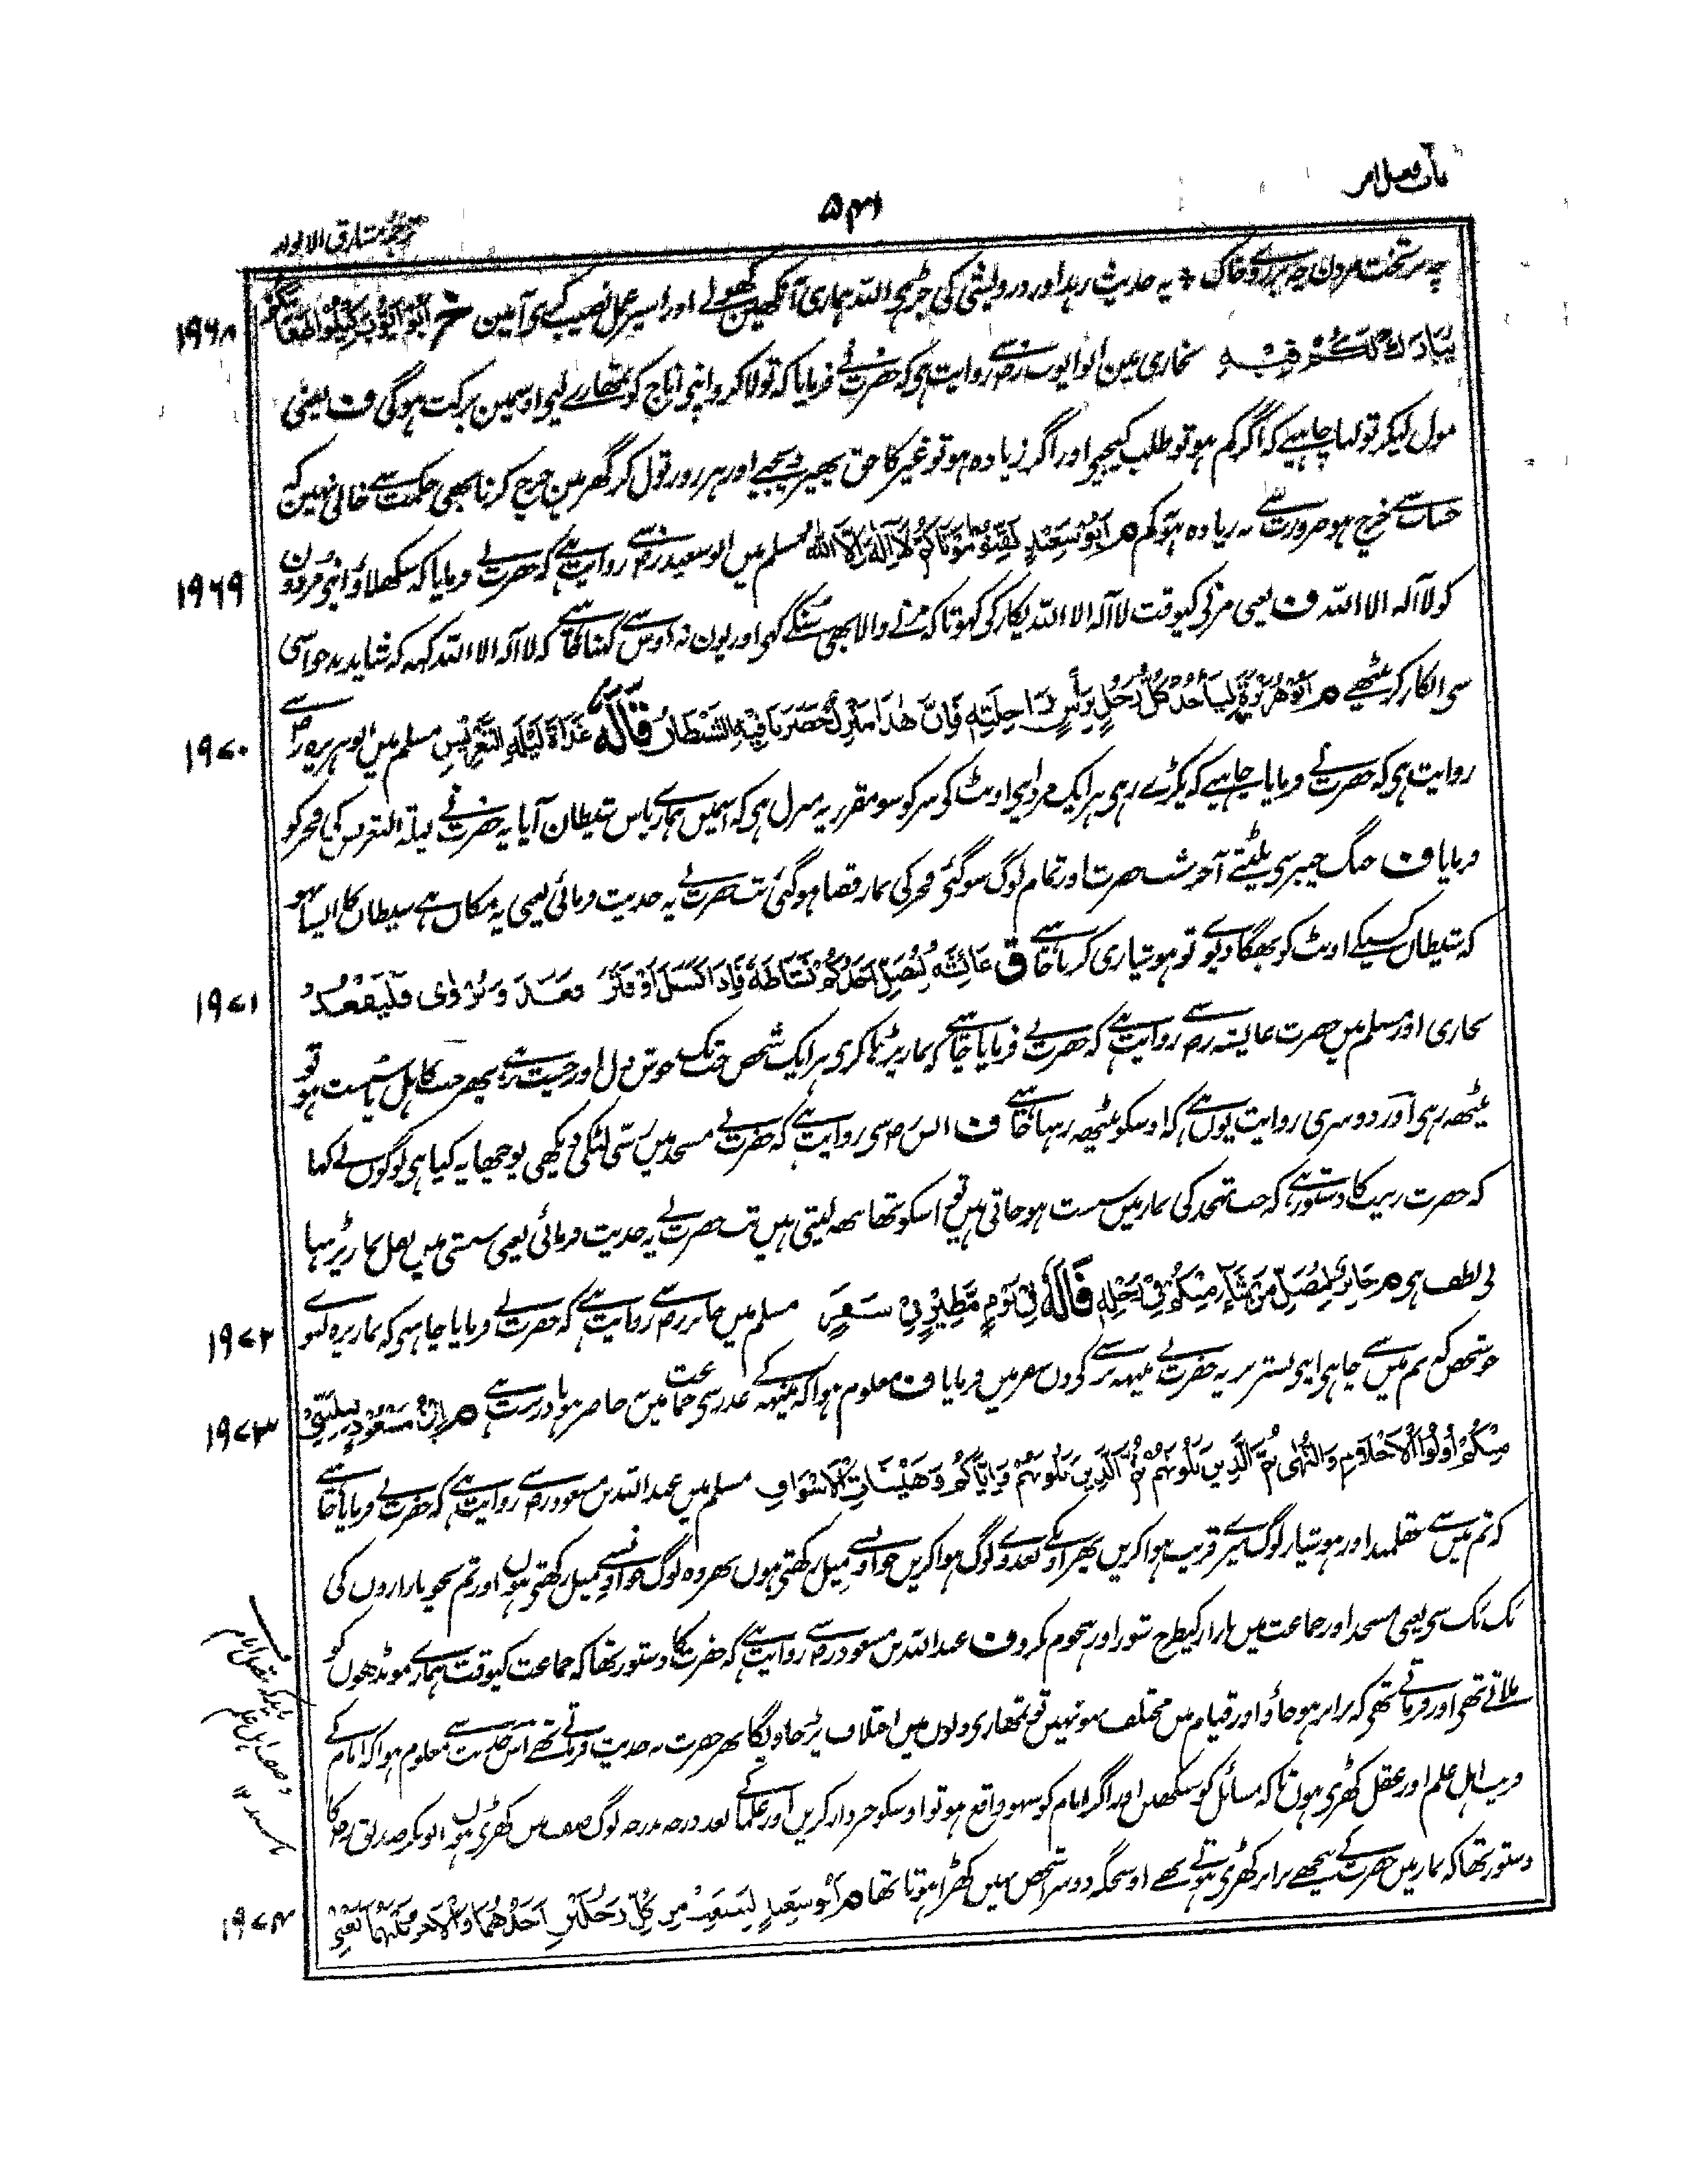 باب فصل امر
۵۴۱
ترجمۂ مشارق الانوار
چہ بر تخت مردن چہ بر روے خاک + یہ حدیث زہد اور درویشی کی جڑ ہی اللہ ہماری آنکھین کھولے اور اسپر عمل نصیب کرے آمین خ اَبُو اَیُّوبَ کِیْلُوْا طَعَامَکُمْ
۱۹۶۸
یُبَارَكْ لَكُمْ فِیْهِ بخاری مین ابو ایوب رضسے روایت ہی کہ حضرتنے فرمایا کہ تولا کرو اپنی اناج کو تمھارے لیی اوسمین برکت ہوگی ف یعنی
مول لیکر تولنا چاہیے کہ اگر کم ہو تو طلب کیجیے اور اگر زیادہ ہو تو غیر کا حق پھیر دیجیے اور ہر روز تول کر گھر مین خرچ کرنا بھی حکمت سے خالی نہین کہ
حساب سے خرچ ہو ضرورت سے نہ زیادہ ہو نہ کم م اَبُوْ سَعِیْدٍ لَقِّنُوْا مَوْتَاكُمْ لَا اِلٰهَ اِلَّا اللهُ مسلم میں ابو سعید رضسے روایت ہے کہ حضرت نے فرمایا کہ سکھلاؤ اپنی مردون
۱۹۶۹
کو لا آلہ الا اللہ ف یعنی مرنی کیوقت لا آلہ الا اللہ پکار کی کہو تا کہ مرنے والا بھی سنکے کہی اور یون نہ اوس سے کہنا چاہیے کہ لا آلہ الا اللہ کہہ کہ شاید بدحواسی
سی انکار کر بیٹھے م اَبُوْ هُرَیْرَةَ لِیَأْخُذْ كُلُّ رَجُلٍ بِرَأْسِ رَاحِلَتِهٖ فَاِنَّ هٰذَا مَنْزِلٌ حَضَرَنَا فِیْهِ الشَّیْطَانُ قَالَهٗ غَدَاةَ لَیْلَةِ التَّعْرِیْسِ مسلم میں ابو ہریرہ رضسے
۱۹۷۰
روایت ہی کہ حضرت نے فرمایا چاہیے کہ پکڑے رہی ہر ایک مرد اپنی اونٹ کی سر کو سو مقرر یہ منزل ہی کہ اسمیں ہمارے پاس شیطان آیا یہ حضرت نے لیلۃ التعریس کی فجر کو
فرمایا ف جنگ خیبر سی پلٹتے آخر شب حضرت اور تمام لوگ سو گئی فجر کی نماز قضا ہو گئی تب حضرت نے یہ حدیث فرمائی یعنی یہ مکان ہے شیطان کا ایسا نہو
کہ شیطان کسیکے اونٹ کو بھگا دیوے تو ہوشیاری کرنا چاہیے ق عَائِشَةُ لِیُصَلِّ اَحَدُكُمْ نَشَاطَهٗ فَاِذَا كَسِلَ اَوْ فَتَرَ قَعَدَ وَیُرْوٰی فَلْیَقْعُدْ
۱۹۷۱
بخاری اور مسلم میں حضرت عایشہ رضسے روایت ہے کہ حضرت نے فرمایا چاہیے کہ نماز پڑہا کری ہر ایک شخص جبتک خوش دل اور چست رہے پھر جب کاہل یا سست ہو تو
بیٹھہ رہی اور دوسری روایت یوں ہے کہ اوسکو بیٹھہ رہنا چاہیے ف انس رض سی روایت ہے کہ حضرت نے مسجد میں رسی لٹکی دیکھی پوچھا یہ کیا ہی لوگوں نے کہا
کہ حضرت زینب کا دستور ہے کہ جب تہجد کی نماز میں سست ہو جاتی ہیں تو اسکو تھامبھہ لیتی ہیں تب حضرت نے یہ حدیث فرمائی یعنی سستی میں نفل نماز پڑہنا
بی لطف ہی م جَابِرٌ لِیُصَلِّ مَنْ شَآءَ مِنْكُمْ فِیْ رَحْلِهٖ قَالَهٗ فِیْ یَوْمٍ مَّطِیْرٍ فِیْ سَفَرٍ مسلم میں جابر رضسے روایت ہے کہ حضرت نے فرمایا چاہیے کہ نماز پڑہ لیوے
۱۹۷۲
جو شخص کہ تم میں سے چاہی اپنی بستر پر یہ حضرت نے مینہہ برسے کی دن سفر میں فرمایا ف معلوم ہوا کہ مینہہ کے عذر سی جماعت میں حاضر نہونا درست ہے م اِبْنُ مَسْعُوْدٍ لِیَلِیَنِّیْ
۱۹۷۳
مِنْكُمْ اُولُوا الْاَحْلَامِ وَالنُّهٰی ثُمَّ الَّذِیْنَ یَلُوْنَهُمْ ثُمَّ الَّذِیْنَ یَلُوْنَهُمْ وَاِیَّاكُمْ وَهَیْشَاتِ الْاَسْوَاقِ مسلم میں عبد اللہ بن مسعود رضسے روایت ہے کہ حضرت نے فرمایا چاہیے
کہ تم میں سے عقلمند اور ہوشیار لوگ میرے قریب ہوا کریں پھر اونکے بعد وے لوگ ہوا کریں جو اونسے میل رکھتی ہوں پھر وہ لوگ جو اونسے میل رکھتی ہوں اور تم بچو بازاروں کی
بک بک سی یعنی مسجد اور جماعت میں بازار کیطرح شور اور ہجوم نکرو ف عبد اللہ بن مسعود رضسے روایت ہے کہ حضرت کا دستور تھا کہ جماعت کیوقت ہمارے مونڈھوں کو
ملاتے تھی اور فرماتے تھی کہ برابر ہو جاؤ اور قیام میں مختلف نہو نہیں تو تمھاری دلوں میں اختلاف پڑ جاویگا پھر حضرت یہ حدیث فرماتے تھے اس حدیث سے معلوم ہوا کہ امام کے
قریب اہل علم اور عقل کھڑی ہوں تا کہ مسائل کو سیکھیں اور اگر امام کو سہو واقع ہو تو اوسکو خبردار کریں اور علما کے بعد درجہ بدرجہ لوگ صف میں کھڑی ہوں ابو بکر صدیق رض کا
دستور تھا کہ نماز میں حضرت کے پیچھے برابر کھڑی ہوتے تھے اوسجگہ دوسرا شخص نہیں کھڑا ہوتا تھا م اَبُوْ سَعِیْدٍ لِیَنْبَعِثْ مِنْ كُلِّ رَجُلَیْنِ اَحَدُهُمَا وَالْاَجْرُ بَیْنَهُمَا یَعْنِیْ
۱۹۷۴